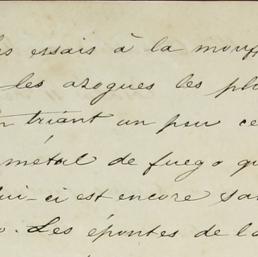 essais à la mouf
les azogues les plu
triant un peu ce
métal de fuego qu
lui-ci est encore sa
o. Les épontes de la